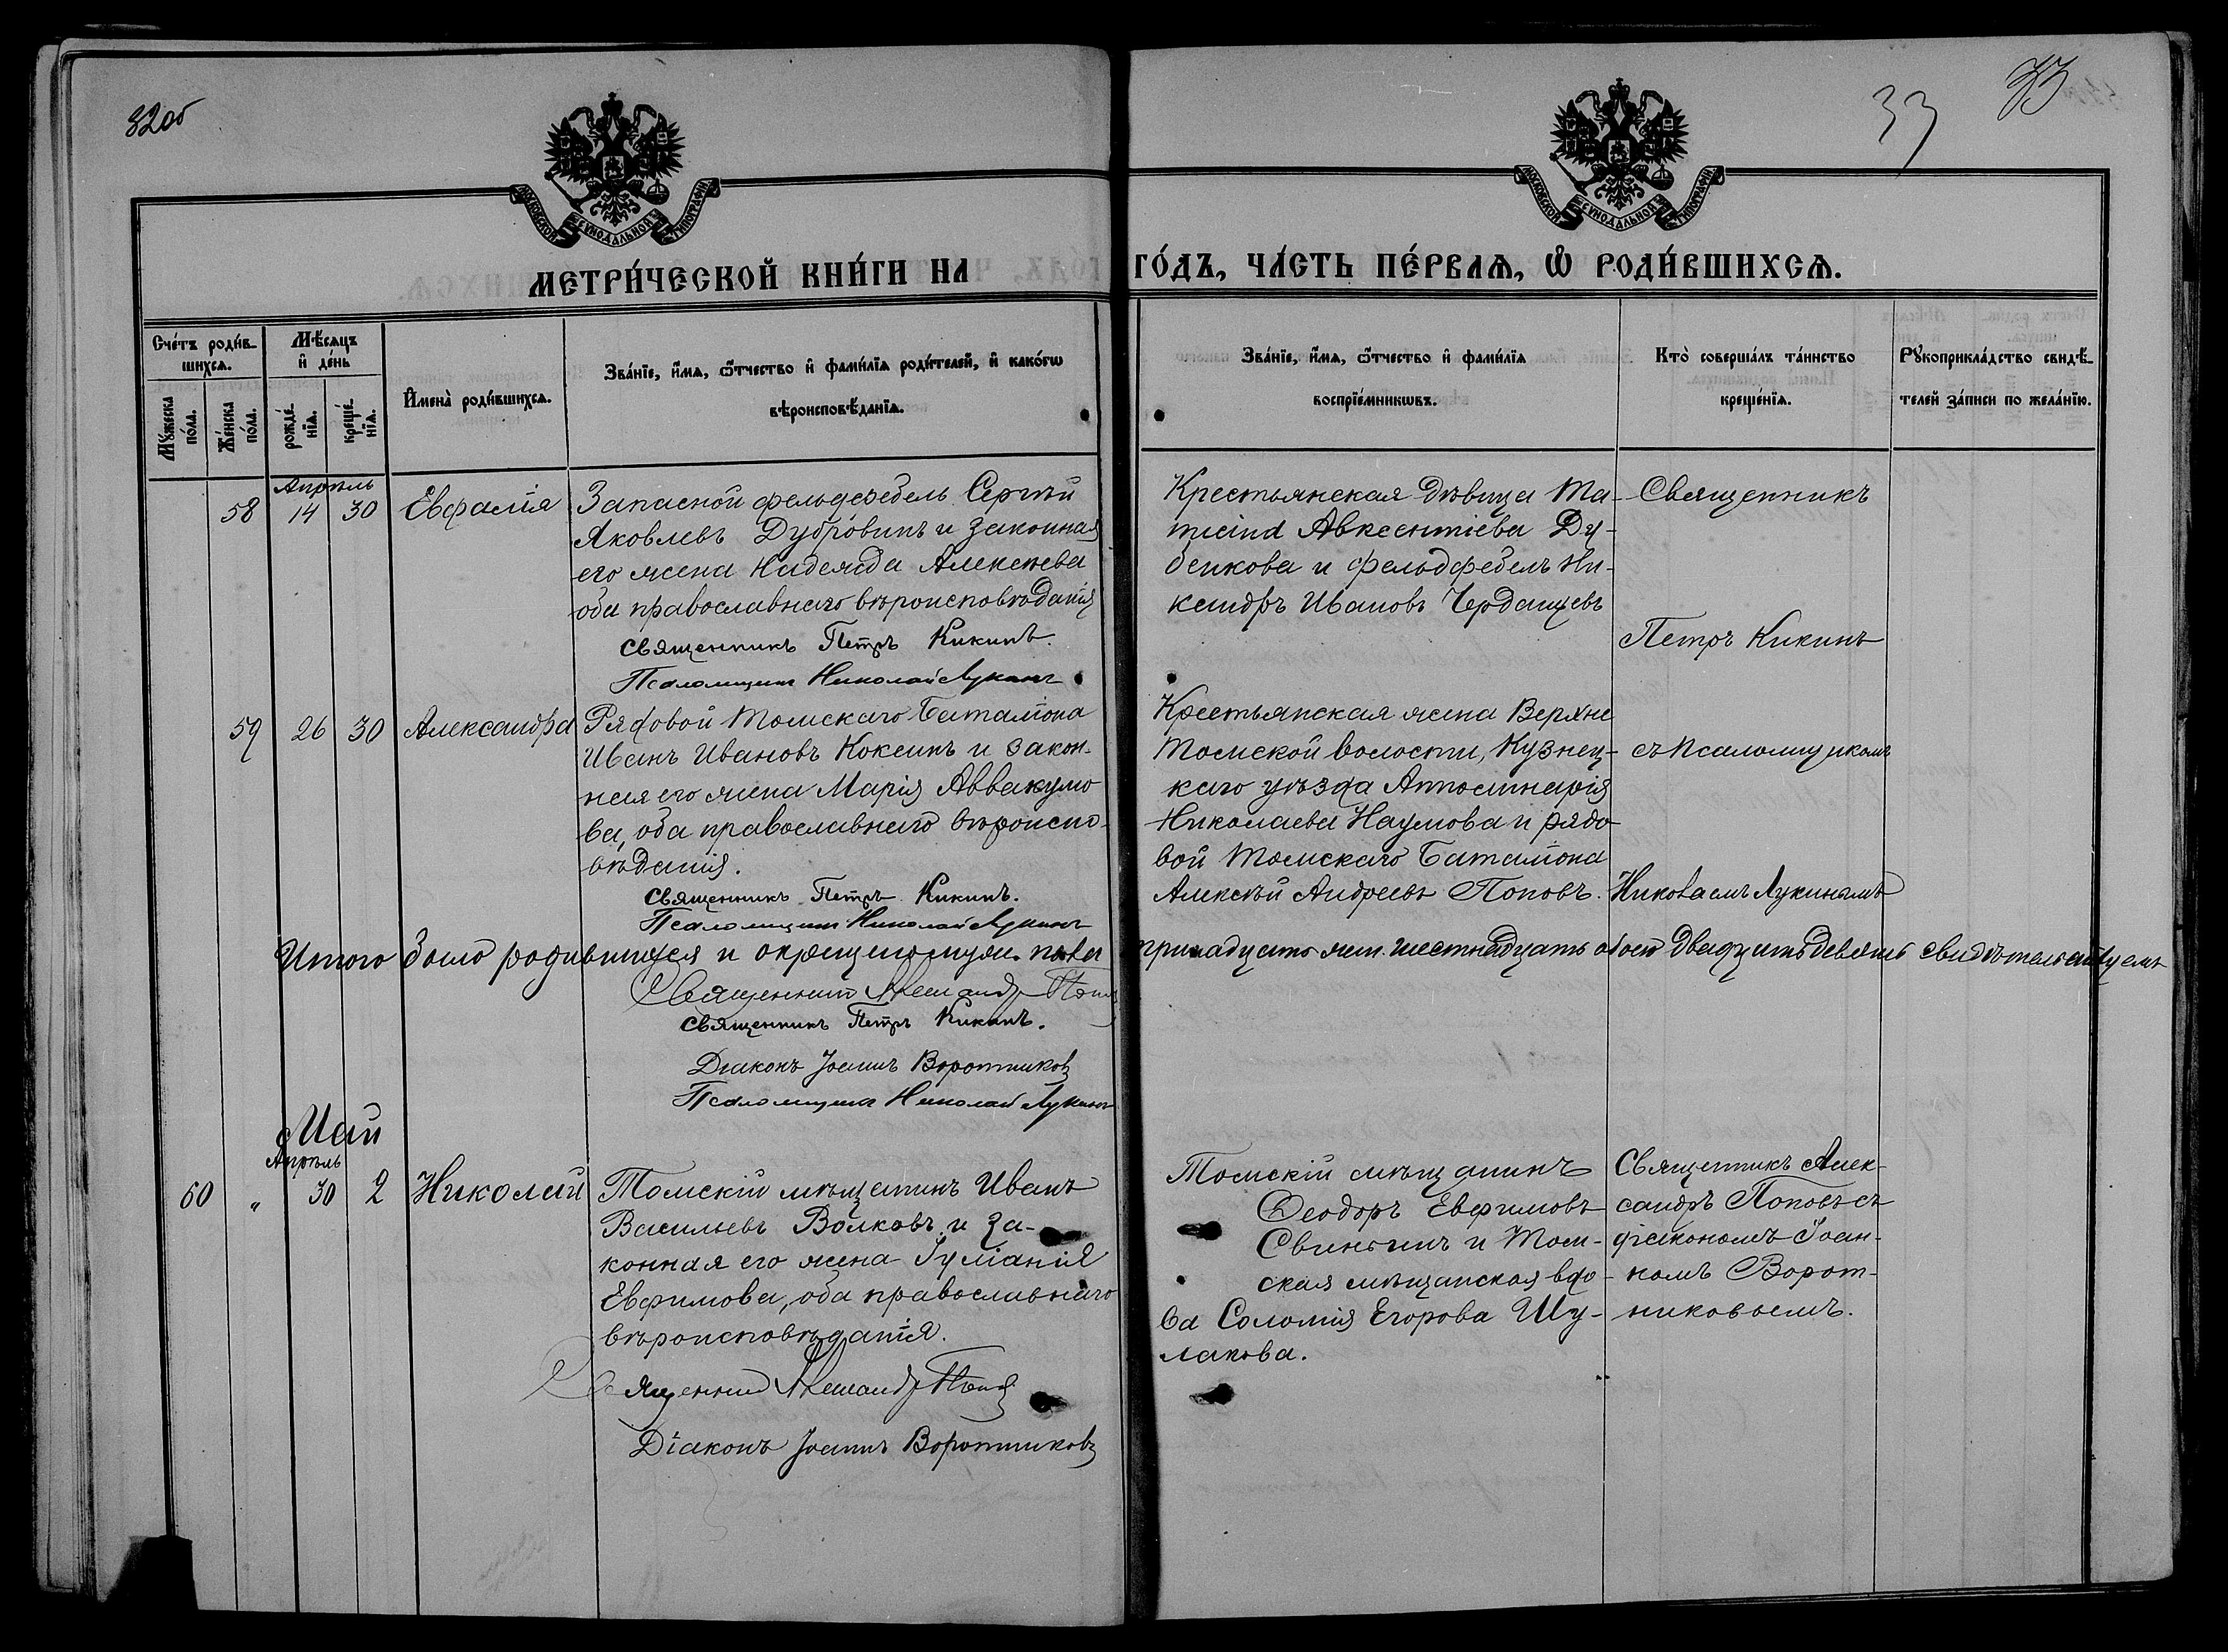 32об
33
33
МОСКОВСКОЙ СѴНОДАЛЬНОЙ ТИПОГРАФІИ
МОСКОВСКОЙ СѴНОДАЛЬНОЙ ТИПОГРАФІИ
МЕТРИ́ЧЕСКОЙ КНИ́ГИ НА
ГО́ДЪ, ЧА́СТЬ ПЕ́РВАѦ, Ѡ҆ РОДИ́ВШИХСѦ.
Сче́тъ роди́в-
шихсѧ.
Мѣ́сѧцъ
и҆ де́нь
Мꙋ́жеска
по́ла.
Же́нска
по́ла.
рожде́-
нїѧ.
креще́-
нїѧ.
И҆мена̀ роди́вшихсѧ.
Зва́нїе, и҆́мѧ, ѻ҆́тчество и҆ фами́лїѧ роди́телей, и҆ како́гѡ
вѣроисповѣ́данїѧ.
Зва́нїе, и҆́мѧ, ѻ҆́тчество и҆ фами́лїѧ
воспрїе́мникѡвъ.
Кто̀ соверша́лъ та́инство
креще́нїѧ.
Рꙋкоприкла́дство свидѣ́-
телей за́писи по жела́нїю.
Апрѣль
58 14 30 Евфалія
Запасной фельдфебель Сергѣй
Яковлевъ Дубровинъ и законная
его жена Надежда Алексѣева
оба православнаго вѣроисповѣданія
Священникъ Петръ Кикинъ.
Псаломщикъ Николай Лукинъ
Крестьянская дѣвица Та-
тіана Авксентіева Ду-
бенкова и фельдфебель Ни-
кандръ Ивановъ Черданцевъ
Священникъ
Петръ Кикинъ
59 26 30 Александра
Рядовой Томскаго Баталіона
Иванъ Ивановъ Кокеинъ и закон-
ная его жена Марія Аввакумо
ва, оба православнаго вѣроиспо-
вѣданія.
Священникъ Петръ Кикинъ.
Псаломщикъ Николай Лукинъ
Крестьянская жена Верхне
Томской волости, Кузнец-
каго уѣзда Апполинарія
Николаева Наумова и рядо
вой Томскаго Баталіона
Алексѣй Андреевъ Поповъ.
съ псаломщикомъ
Николаемъ Лукинымъ
Итого было родившихся и окрещено муж. пола тринадцать жен. шестнадцать обоего двадцать девять свидѣтельствуемъ
Священникъ Александръ Поповъ
Священникъ Петръ Кикинъ.
Діаконъ Іоаннъ Воротниковъ
Псаломщикъ Николай Лукинъ
Май
Апрѣль
60 " 30 2 Николай
Томскій мѣщанинъ Иванъ
Васильевъ Волковъ и за-
конная его жена Іуліанія
Евфимова, оба православнаго
вѣроисповѣданія.
Священникъ Александръ Поповъ
Діаконъ Іоаннъ Воротниковъ
Томскій мѣщанинъ
Ѳеодоръ Евфимовъ
Свиньинъ и Том-
ская мѣщанская вдо-
ва Соломія Егорова Шу-
лакова.
Священникъ Алек-
сандръ Поповъ съ
діакономъ Іоан-
номъ Ворот-
никовымъ.